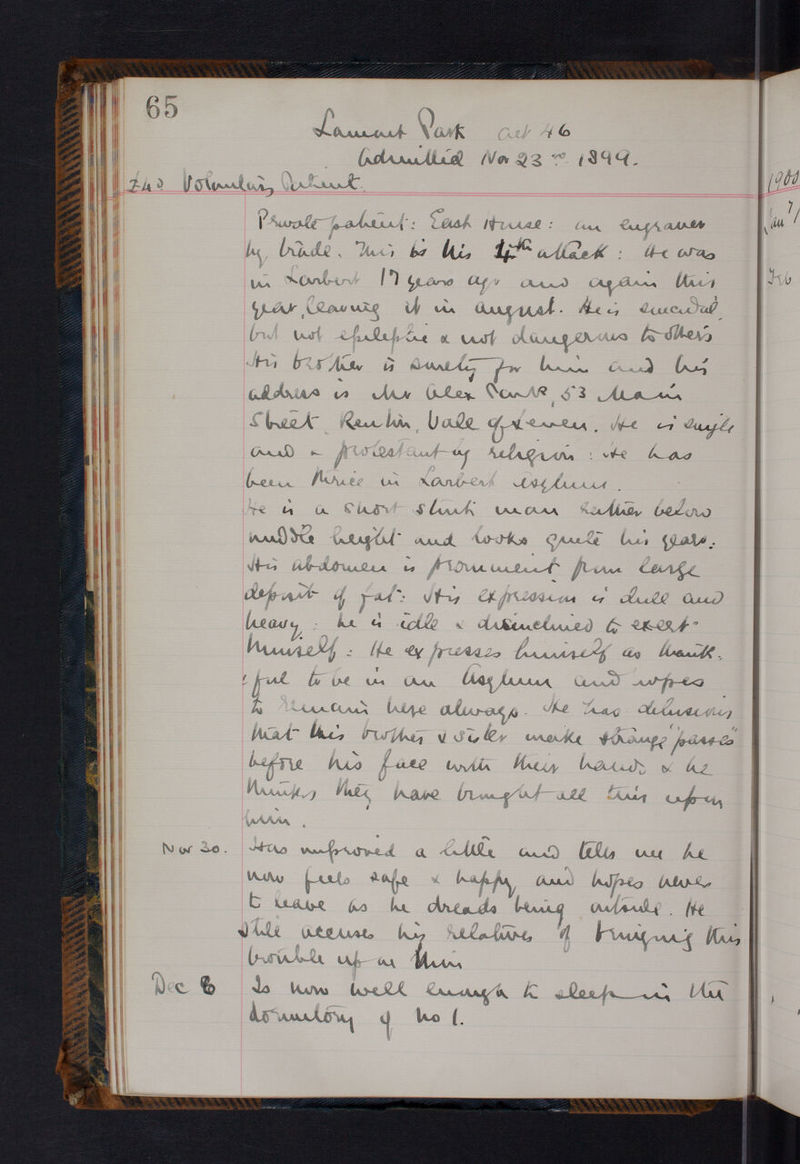 65
Lamont Park aet 46
Admitted Nov 23rd 1899.
Voluntary Patient.
Private patient: East House: an engraver
by trade. This is his 4th attack: He was
in Larbert 17 years ago and again this
year, leaving it in August. He is suicidal,
but not epileptic & not dangerous to others
His brother is surety for him and his
address is Mr Alex Park, 53 Main
Street, Renton, Vale of Leven. He is single
and a protestant by religion: He has
been thrice in Larbert asylum.
He is a short stout man rather below
middle height and looks quite his years.
His abdomen is prominent from large
deposit of fat: His expression is dull and
heavy: he is idle & disinclined to exert
himself: He expresses himself as thank-
ful to be in an Asylum and hopes
to remain here always. He has delusions
that his brother & sister make strange "passes"
before his face with their hands & he
thinks they have brought all this upon
him.
Nov 30. Has improved a little and tells me he
now feels safe & happy and hopes never
to leave as he dreads being outside. He
still accuses his relatives of bringing this
trouble upon him
Dec 8 Is now well enough to sleep in the
dormitory of No 1.
1900
Jan 7/
Feb